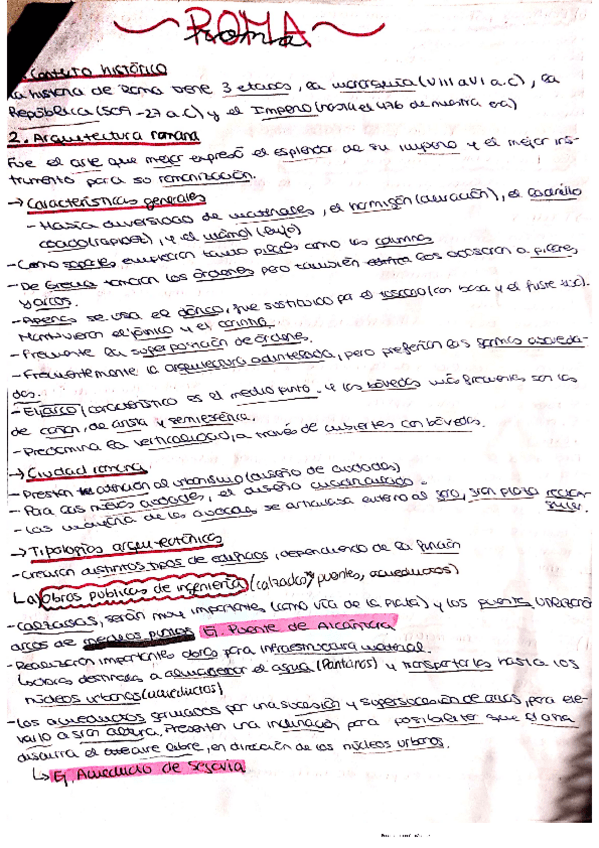 ROMA
1. Contexto histórico
La historia de Roma tiene 3 etapas, la monarquía (VIII a VI a.C), la
República (509-27 a.C) y el Imperio (hasta el 476 de nuestra era)
2. Arquitectura romana
Fue el arte que mejor expresó el esplendor de su imperio y el mejor ins-
trumento para su romanización.
→ Características generales
- Había diversidad de materiales, el hormigón (duración), el ladrillo
cocido (rapidez), y el mármol (lujo)
- Como soportes, emplearon tanto pilares como las columnas
- De Grecia tomaron los órdenes pero también los a pilares
y arcos.
- Apenas se usa el dórico, fue sustituido por el toscano (con basa y el fuste liso).
Mantuvieron el jónico y el corintio.
- Frecuente la superposición de órdenes.
- Frecuentemente la arquitectura adintelada, pero preferían las formas aboveda-
das.
- El arco característico es el medio punto. Y las bóvedas más frecuentes son las
de cañón, de arista y semiesférica.
- Predomina la verticalidad, a través de cubiertas con bóvedas.
→ Ciudad romana
- Prestan atención al urbanismo (diseño de ciudades)
- Para las nuevas ciudades, el diseño cuadriculado.
- Las mayoría de las se articulaba entorno al foro, gran plaza rectan-
gular.
→ Tipologías arquitectónicas
- Crearon distintos tipos de edificios, dependiendo de la función
↳ Obras públicas de ingeniería (calzadas, puentes, acueductos)
- Calzadas, serán muy importantes (como vía de la Plata) y los puentes
arcos de Ej. Puente de Alcántara
- Realización importantes obras para infraestructura material.
destinadas a almacenar el agua (Pantanos) y transportarlas hasta los
núcleos urbanos (acueductos)
- Los acueductos formados por una sucesión y supersucesión de arcos, para ele-
varlo a gran altura. Presentan una inclinación para posibilitar que el agua
discurra al aire libre, en dirección de los núcleos urbanos.
↳ Ej. Acueducto de Segovia